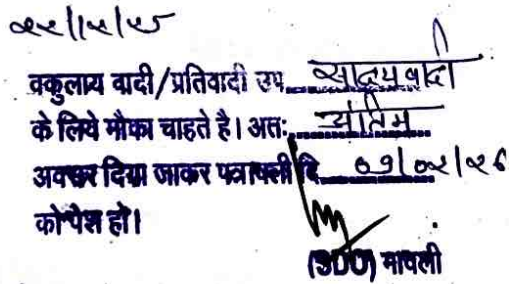 २२/१२/२५
वकुलाय वादी/प्रतिवादी उप साक्ष्य वादी
के लिये मौका चाहते है। अतः अंतिम
अवसर दिया जाकर पत्रावली दि ०९/०२/२६
को पेश हो।
(SDO) मावली